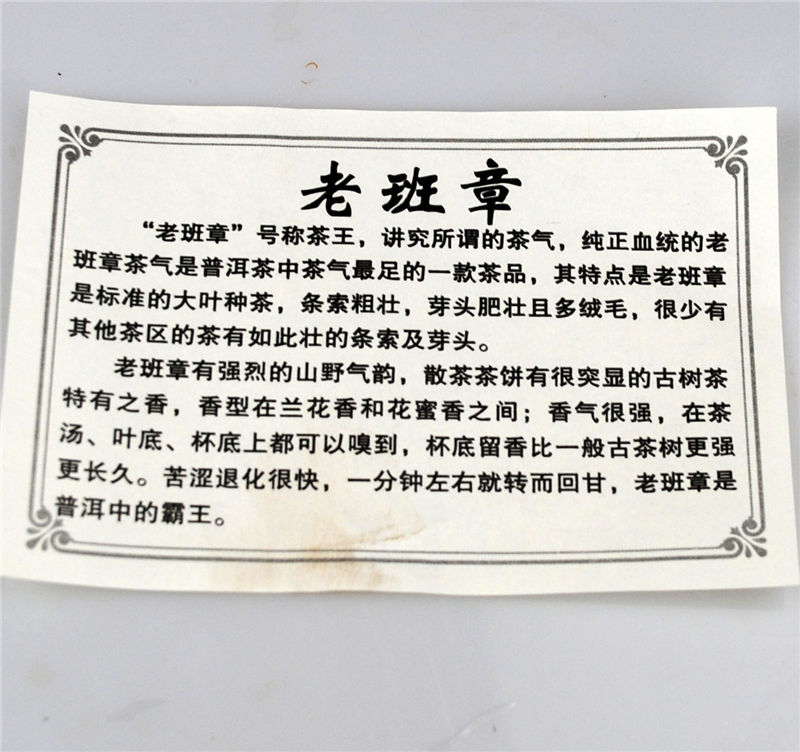 老班章
“老班章”号称茶王，讲究所谓的茶气，纯正血统的老
班章茶气是普洱茶中茶气最足的一款茶品，其特点是老班章
是标准的大叶种茶，条索粗壮，芽头肥壮且多绒毛，很少有
其他茶区的茶有如此壮的条索及芽头。
老班章有强烈的山野气韵，散茶茶饼有很突显的古树茶
特有之香，香型在兰花香和花蜜香之间；香气很强，在茶
汤、叶底、杯底上都可以嗅到，杯底留香比一般古茶树更强
更长久。苦涩退化很快，一分钟左右就转而回甘，老班章是
普洱中的霸王。